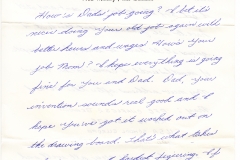 How is Dad's job going? I bet it's
nice doing your old job again with
better hours and wages. How's your
job Mom? I hope everything is going
fine for you and Dad. Dad, your
invention sounds real good and I
hope you've got it worked out on
the drawing board. That's what takes
figuring. If